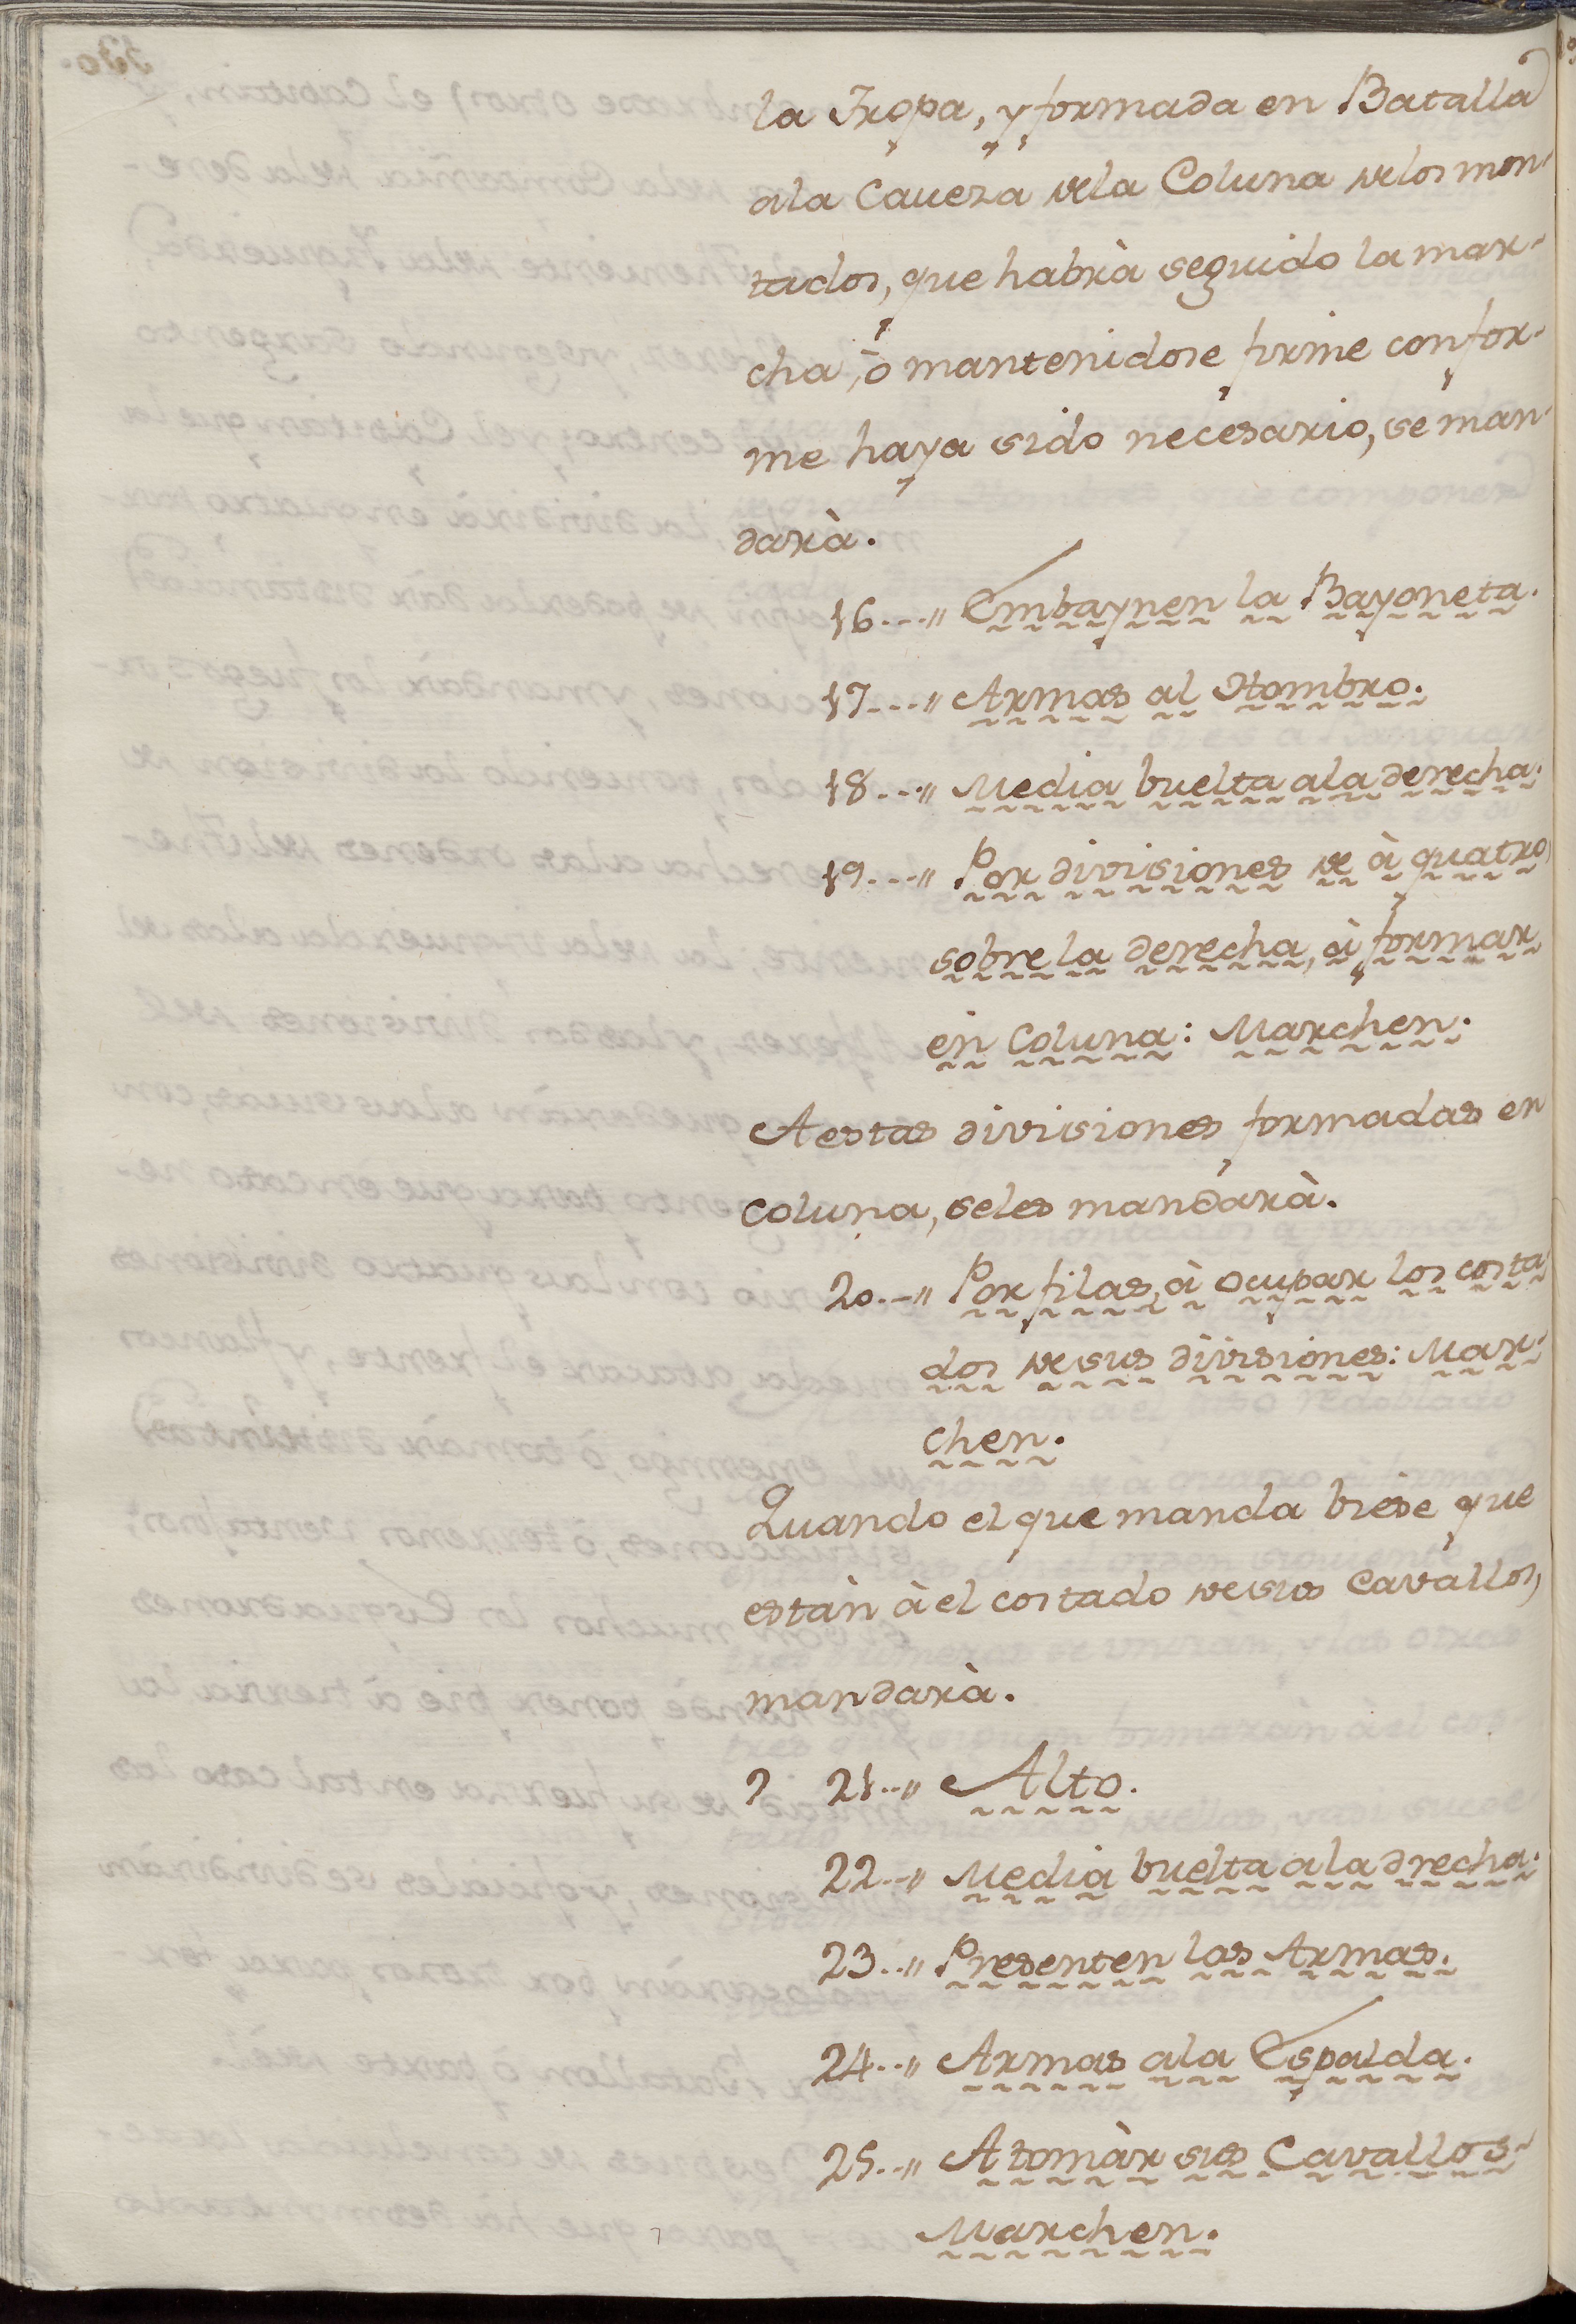 la Tropa, y formada en Batalla
ala Caueza de la Coluna de los mon-
tados, que habrà seguido la mar-
cha, ò mantenidose firme confor-
me haya sido necesario, se man-
darà.
16...„ Embaynen la Bayoneta.
17...„ Armas al Hombro.
18...„ Media buelta ala derecha.
19...„ Por divisiones de à quatro
sobre la derecha, à formar
en Coluna: Marchen.
A estas divisiones formadas en
Coluna, seles mandarà.
20..„ Por filas, à ocupar los costa
dos de sus divisiones: Mar-
chen.
Quando el que manda biese que
estàn à el costado de sus Cavallos,
mandarà.
? 21..„ Alto.
22..„ Media buelta ala drecha.
23..„ Presenten las Armas.
24..„ Armas ala Espalda.
25..„ A tomàr sus Cavallos-
Marchen.